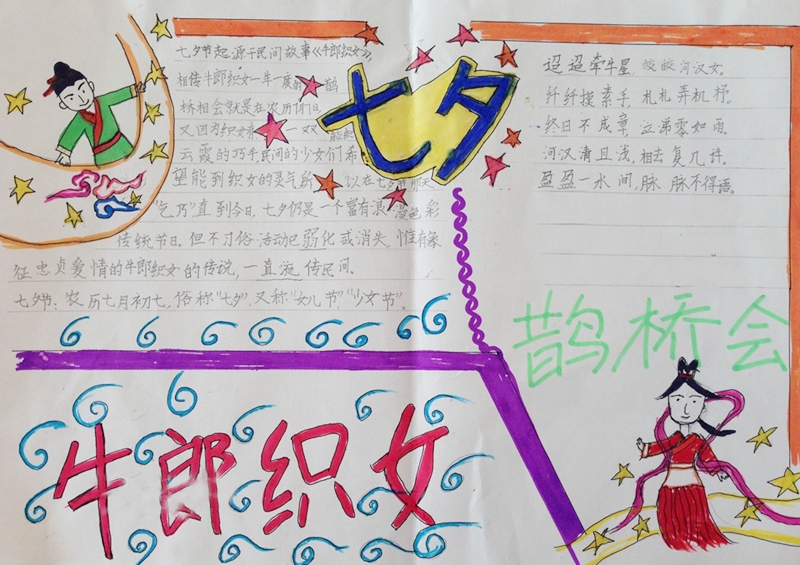 七夕
七夕节起源于民间故事《牛郎织女》,
相传牛郎织女一年一度的鹊
桥相会就是在农历
又因为织女
云霞的巧手民间的少女们希
望能到织女的灵气 以在七夕
“乞巧”直到今日,七夕仍是一个富有浪漫色彩
传统节日.但不习俗活动已弱化或消失,惟有象
征忠贞爱情的牛郎织女的传说,一直流传民间.
七夕节:农历七月初七,俗称“七夕”.又称“女儿节”“少女节”。
迢迢牵牛星,皎皎河汉女。
纤纤摸素手,札札弄机杼。
终日不成章,泣涕零如雨。
河汉清且浅,相去复几许。
盈盈一水间,脉脉不得语。
鹊桥会
牛郎织女